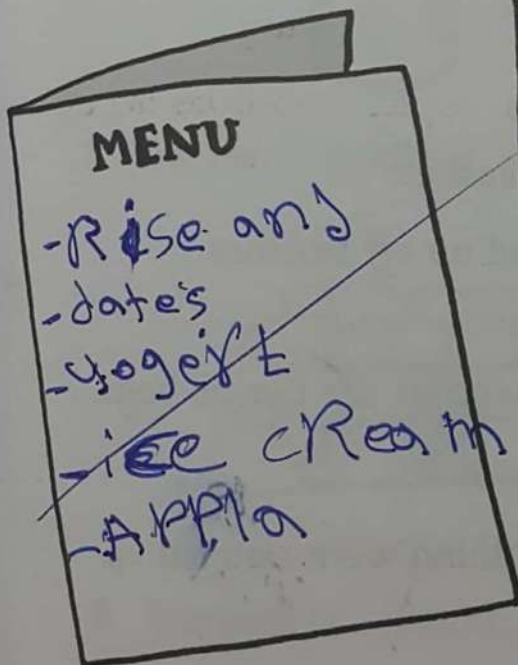 MENU
-Rise and
-dates
-yogert
-ice cReam
-APPla